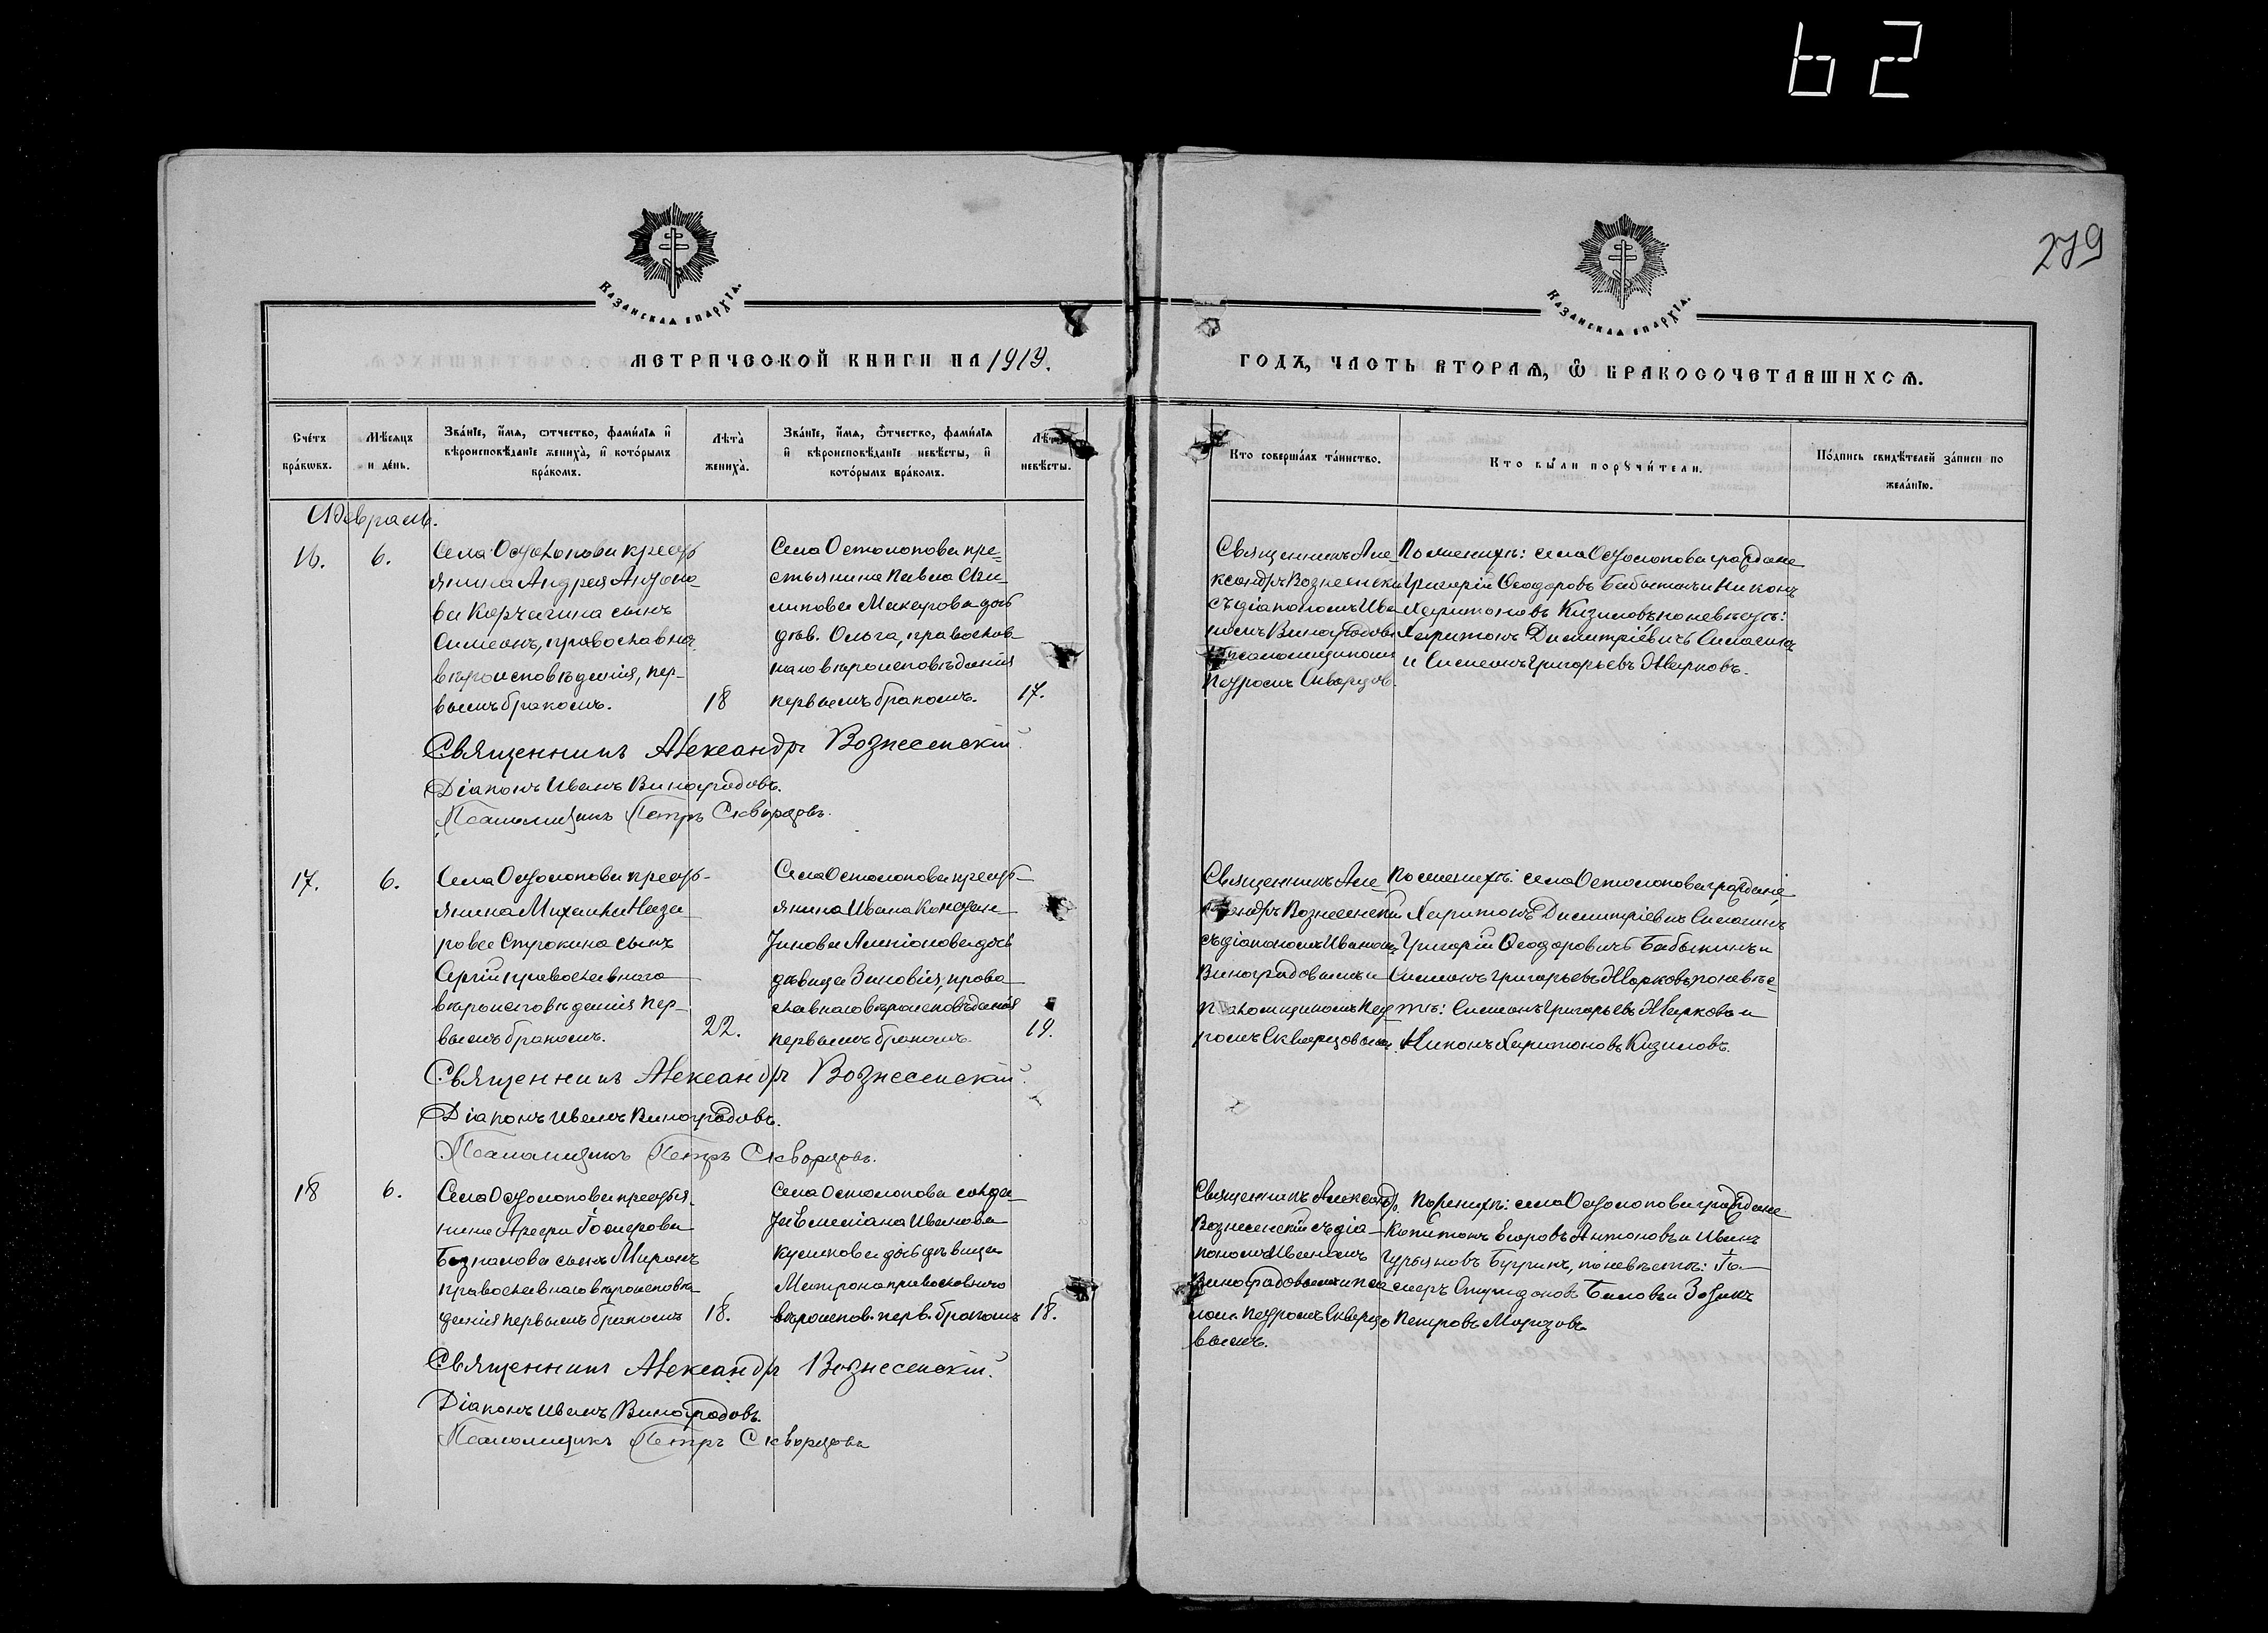 62
279
Казанская епархїя.
Казанская епархїя.
МЕТРИЧЕСКОЙ КНИГИ НА 1919.
ГОДЪ, ЧАСТЬ ВТОРАѦ, Ѿ БРАКОСОЧЕТАВШИХСѦ.
Счетъ браковъ.
Мѣсяцъ и день.
Званїе, имя, отчество, фамилїя и
вѣроисповѣданїе жениха, и которымъ
бракомъ.
Лѣта
жениха.
Званїе, имя, отчество, фамилїя
и вѣроисповѣданїе невѣсты, и
которымъ бракомъ.
Лѣта
невѣсты.
Кто совершалъ таинство.
Кто были поручители.
Подпись свидѣтелей записи по
желанїю.
Февраль.
16.
6.
Села Остолопова кресть
янина Андрея Антоно-
ва Корчагина сынъ
Симеонъ, православна
вѣроисповѣданія, пер-
вымъ бракомъ.
18
Села Остолопова кре=
стьянина Павла
Макарова дочь
дѣв. Ольга, православ-
наго вѣроисповѣданія
первымъ бракомъ.
17.
Священникъ Але-
ксандръ Вознесенскій
съ діакономъ Ива-
номъ Виноградовы
псаломщикомъ
Петромъ Скворцов.
По женихѣ: села Остолопова граждане
Григорій Ѳеодоровъ Бабыкинъ и Никонъ
Харитоновъ Кизиловъ по невѣстѣ:
Харитонъ Димитріевичъ
и Симеонъ Григорьевъ Марковъ.
Священникъ Александръ Вознесенскій.
Діаконъ Иванъ Виноградовъ.
Псаломщикъ Петръ Скворцовъ.
17.
6.
Села Остолопова кресть-
янина Михаила Наза-
рова Строкина сынъ
Сергій православнаго
вѣроисповѣданія пер-
вымъ бракомъ.
22.
Села Остолопова кресть-
янина Ивана Констан-
тинова дочь
дѣвица Зиновія, право
славнаго вѣроисповѣданія
первымъ бракомъ.
19.
Священникъ Але-
ксандръ Вознесенскій
съ діакономъ Иваномъ
Виноградовымъ и
псаломщикомъ Пет
ромъ Скворцовымъ.
По женихѣ: села Остолопова граждане,
Харитонъ Димитріевичъ
Григорій Ѳеодоровичъ Бабыкинъ и
Симеонъ Григорьевъ Марковъ по невѣс-
тѣ: Симеонъ Григорьевъ Марковъ и
Никонъ Харитоновъ Кизиловъ.
Священникъ Александръ Вознесенскій.
Діаконъ Иванъ Виноградовъ.
Псаломщикъ Петръ Скворцовъ.
18
6.
Села Остолопова крестья
нина
сынъ Миронъ
православнаго вѣроисповѣ
данія первымъ бракомъ
18.
Села Остолопова солда-
та Емеліана Иванова
Куликова дочь дѣвица
Матрона православнаго
вѣроиспов. перв. бракомъ
18.
Священникъ Александръ
Вознесенскій съ діа-
кономъ Иваномъ
Виноградовымъ и псал
мщ. Петромъ Скворцо
вымъ.
По женихѣ: села Остолопова граждане
Капитонъ Егоровъ Антоновъ и Иванъ
Гурьяновъ, по невѣстѣ:
Спиридоновъ Бѣловъ и
Петровъ Морозовъ
Священникъ Александръ Вознесенскій.
Діаконъ Иванъ Виноградовъ.
Псаломщикъ Петръ Скворцовъ